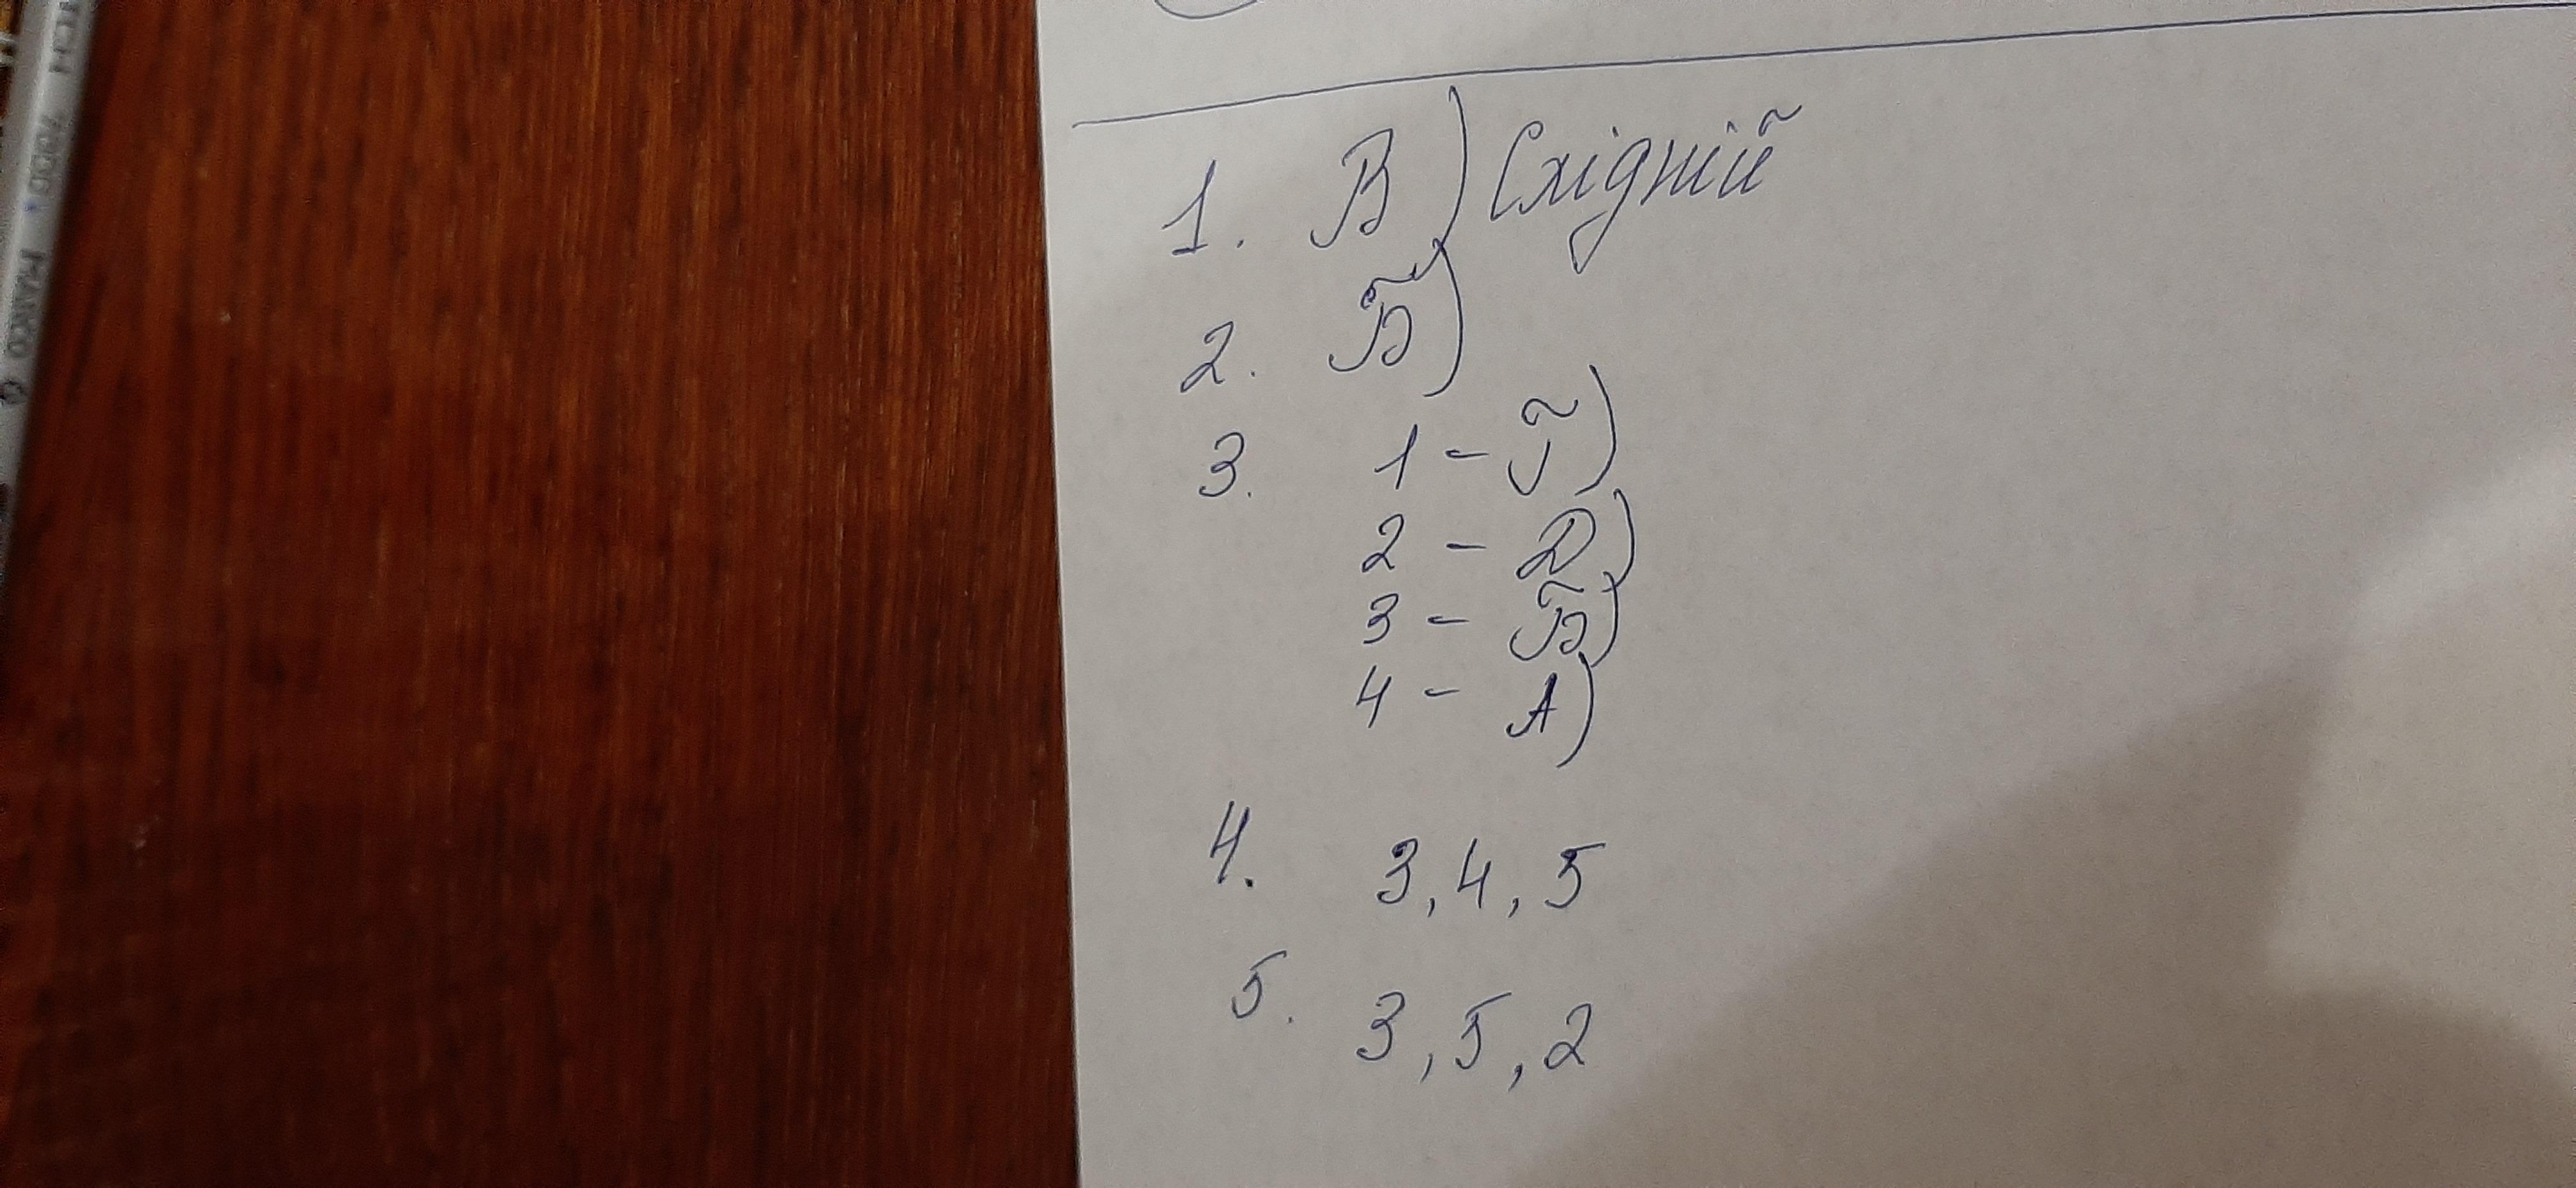 1. В) Східній
2. Б)
3. 1 - Г)
2 - Д)
3 - Б)
4 - А)
4. 3, 4, 5
5. 3, 5, 2